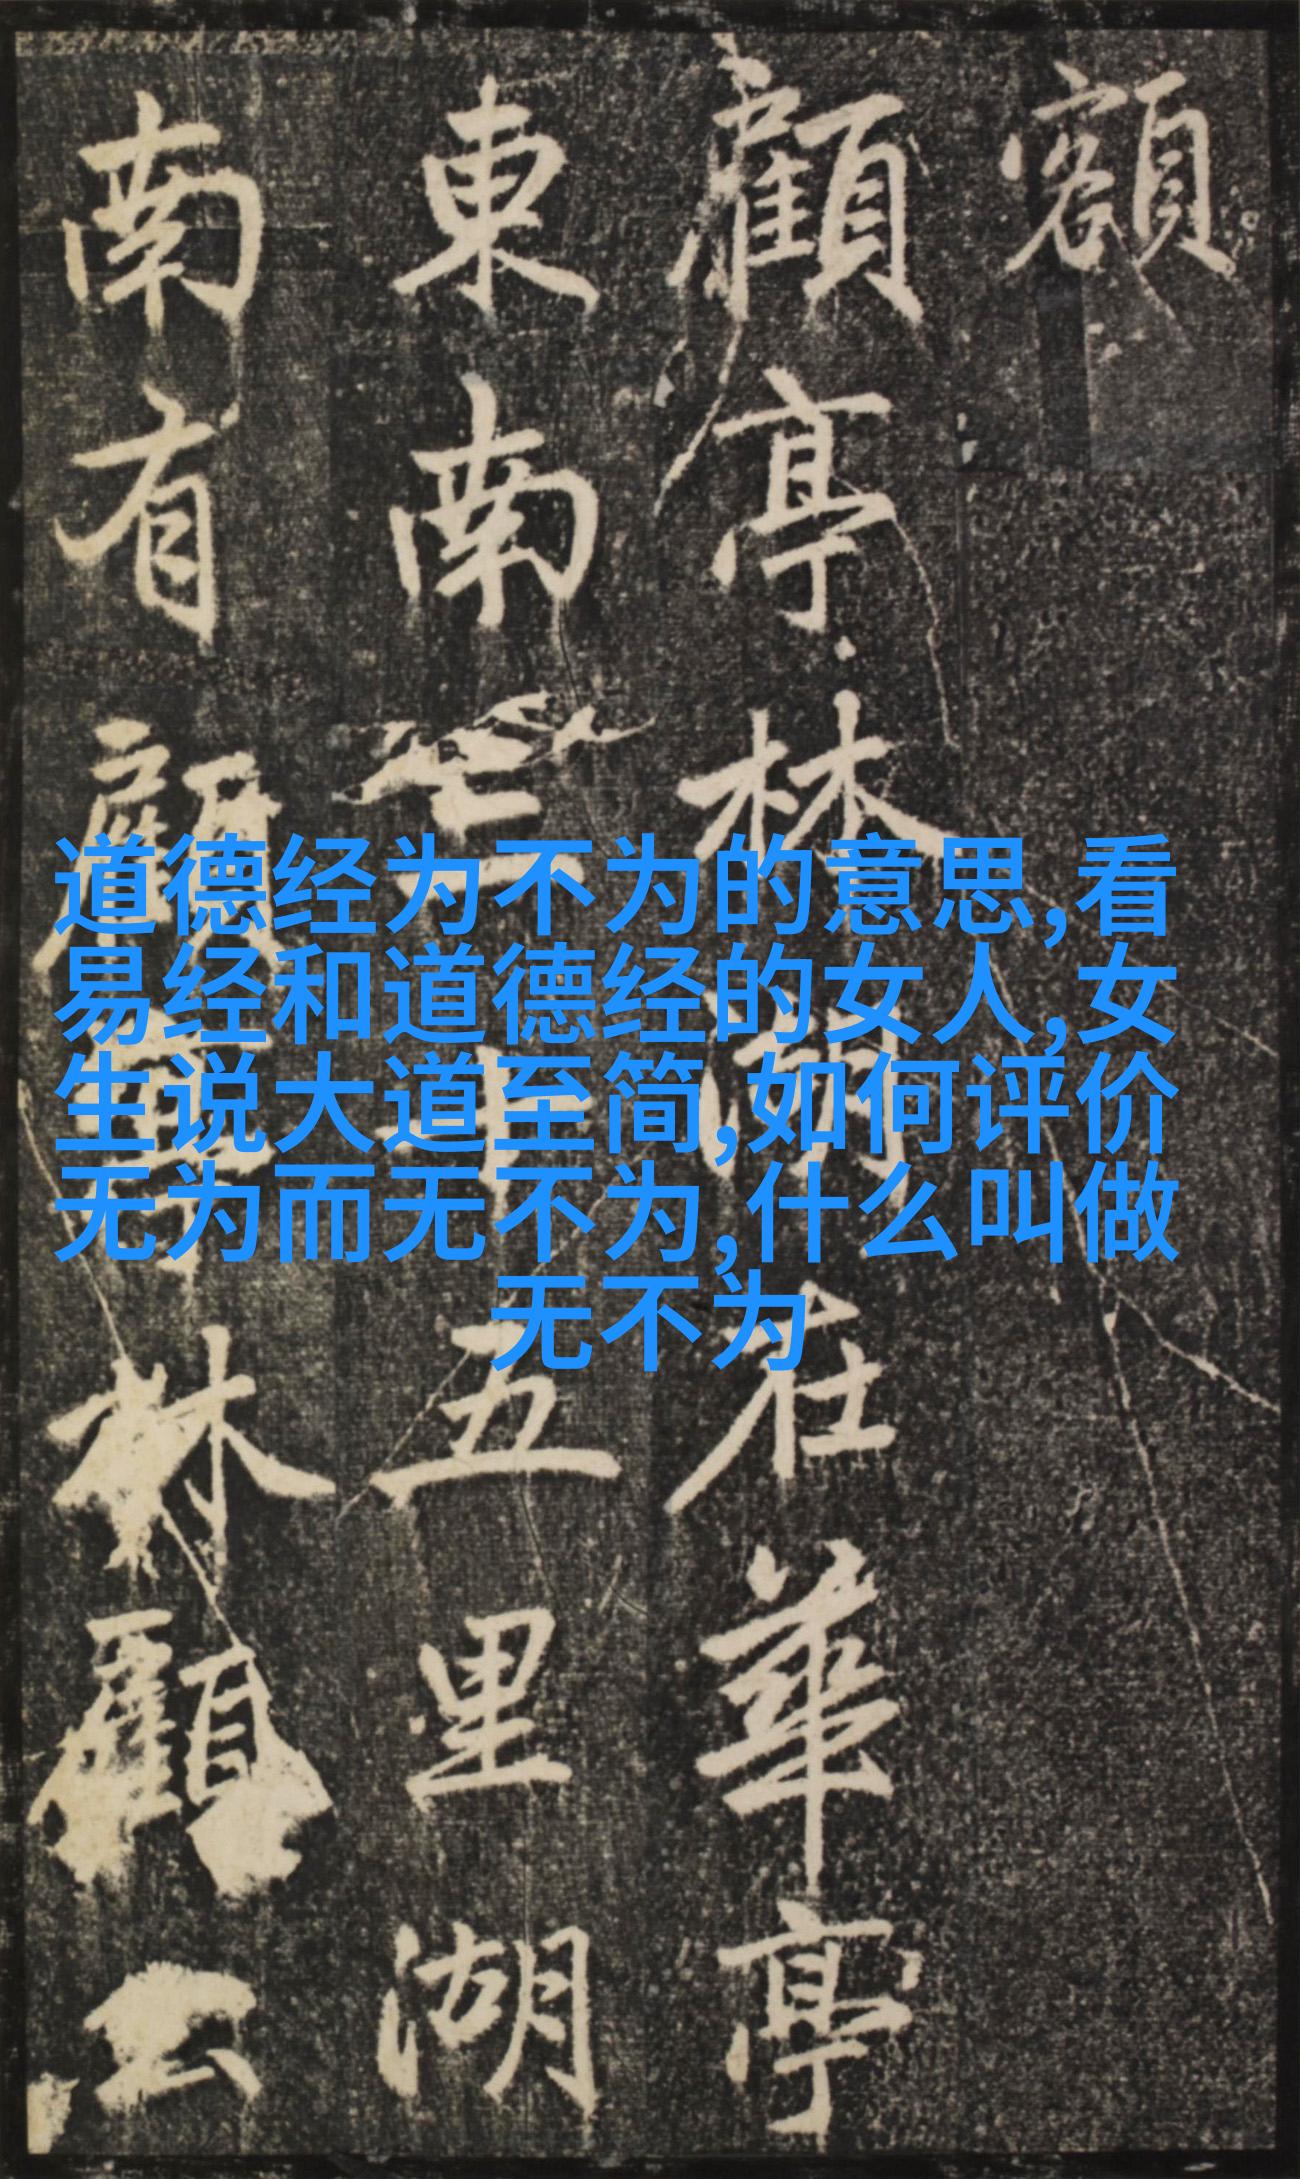 額
顧亭林湖在華亭
東南三十五里湖
南有顧
林顧
道德经为不为的意思,看
易经和道德经的女人,女
生说大道至简,如何评价
无为而无不为,什么叫做
无不为